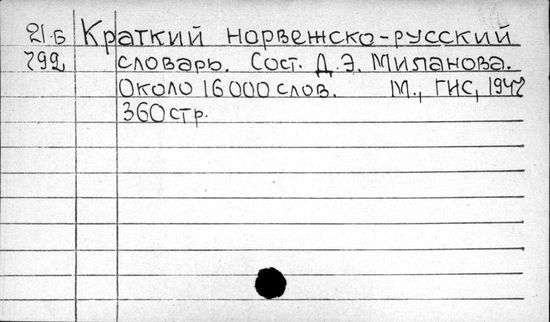 21-Б Краткий норвежско-русский
792 словарь. Сост. Д.Э. Миланова.
Около 16000 слов. М., ГИС, 1947
360 стр.